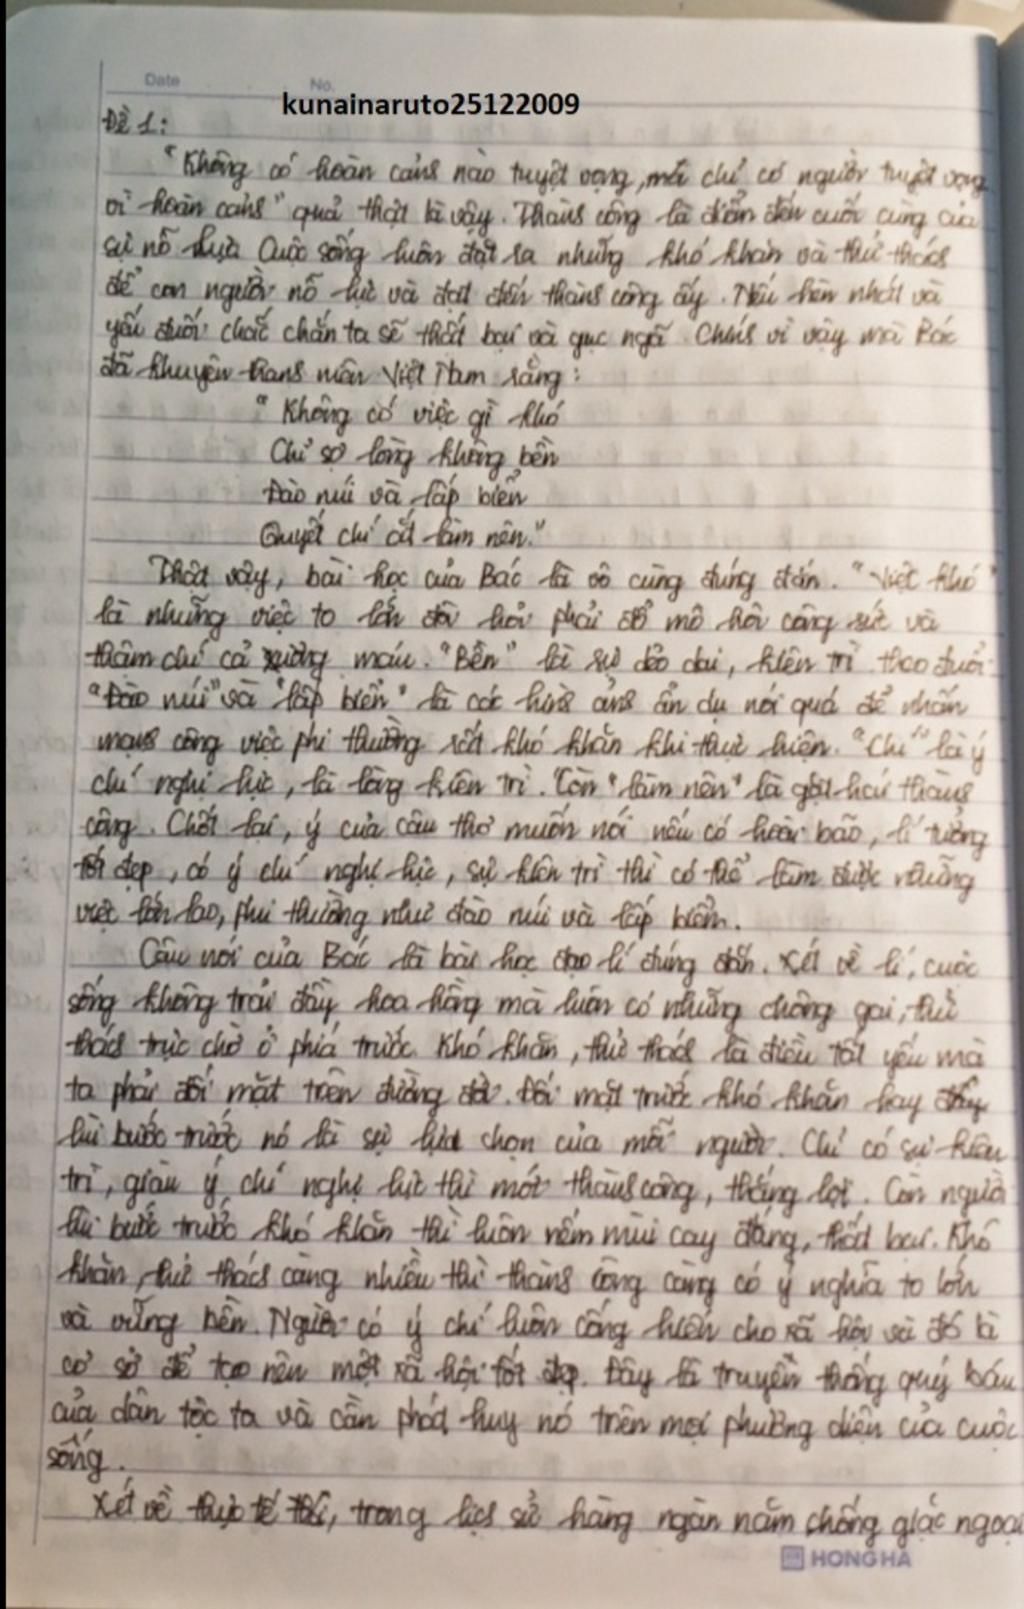 Date No.
kunainaruto25122009
Đề 1:
"Không có hoàn cảnh nào tuyệt vọng, mà chỉ có người tuyệt vọng
vì hoàn cảnh" quả thật là vậy. Thành công là điểm đến cuối cùng của
sự nỗ lực. Cuộc sống luôn đặt ra những khó khăn và thử thách
để con người nỗ lực và đạt đến thành công ấy. Nếu hèn nhát và
yếu đuối chắc chắn ta sẽ thất bại và gục ngã. Chính vì vậy mà Bác
đã khuyên thanh niên Việt Nam rằng:
"Không có việc gì khó
Chỉ sợ lòng không bền
Đào núi và lấp biển
Quyết chí ắt làm nên."
Thật vậy, bài học của Bác là vô cùng đúng đắn. "Việc khó"
là những việc to lớn đòi hỏi phải đổ mồ hôi công sức và
thậm chí cả xương máu. "Bền" là sự dẻo dai, kiên trì theo đuổi.
"Đào núi" và "lấp biển" là các hình ảnh ẩn dụ nói quá để nhấn
mạnh công việc phi thường rất khó khăn khi thực hiện. "Chí" là ý
chí nghị lực, là lòng kiên trì. Còn "làm nên" là gặt hái thành
công. Chốt lại, ý của câu thơ muốn nói nếu có hoài bão, lí tưởng
tốt đẹp, có ý chí nghị lực, sự kiên trì thì có thể làm được những
việc lớn lao, phi thường như đào núi và lấp biển.
Câu nói của Bác là bài học đạo lí đúng đắn. Xét về lí, cuộc
sống không trải đầy hoa hồng mà luôn có những chông gai, thử
thách trực chờ ở phía trước. Khó khăn, thử thách là điều tất yếu mà
ta phải đối mặt trên đường đời. Đối mặt trước khó khăn hay
lùi bước trước nó là sự lựa chọn của mỗi người. Chỉ có sự kiên
trì, giàu ý chí nghị lực thì mới thành công, thắng lợi. Còn người
lùi bước trước khó khăn thì luôn nếm mùi cay đắng, thất bại. Khó
khăn, thử thách càng nhiều thì thành công càng có ý nghĩa to lớn
và vững bền. Người có ý chí luôn cống hiến cho xã hội và đó là
cơ sở để tạo nên một xã hội tốt đẹp. Đây là truyền thống quý báu
của dân tộc ta và cần phát huy nó trên mọi phương diện của cuộc
sống.
Xét về thực tế, trong lịch sử hàng ngàn năm chống giặc ngoại
HONG HA